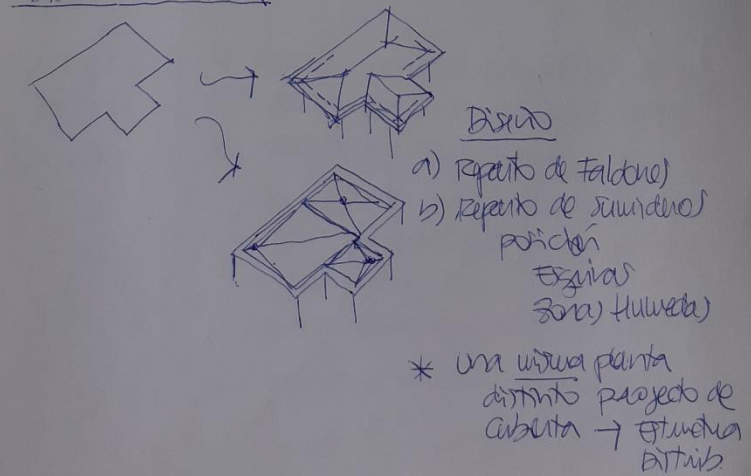 Diseño
a) Reparto de Faldones
b) Reparto de Sumideros
posición
Esquinas
zonas Humedas
* una misma planta
distinto proyecto de
cubierta → Estructura
Distrib.